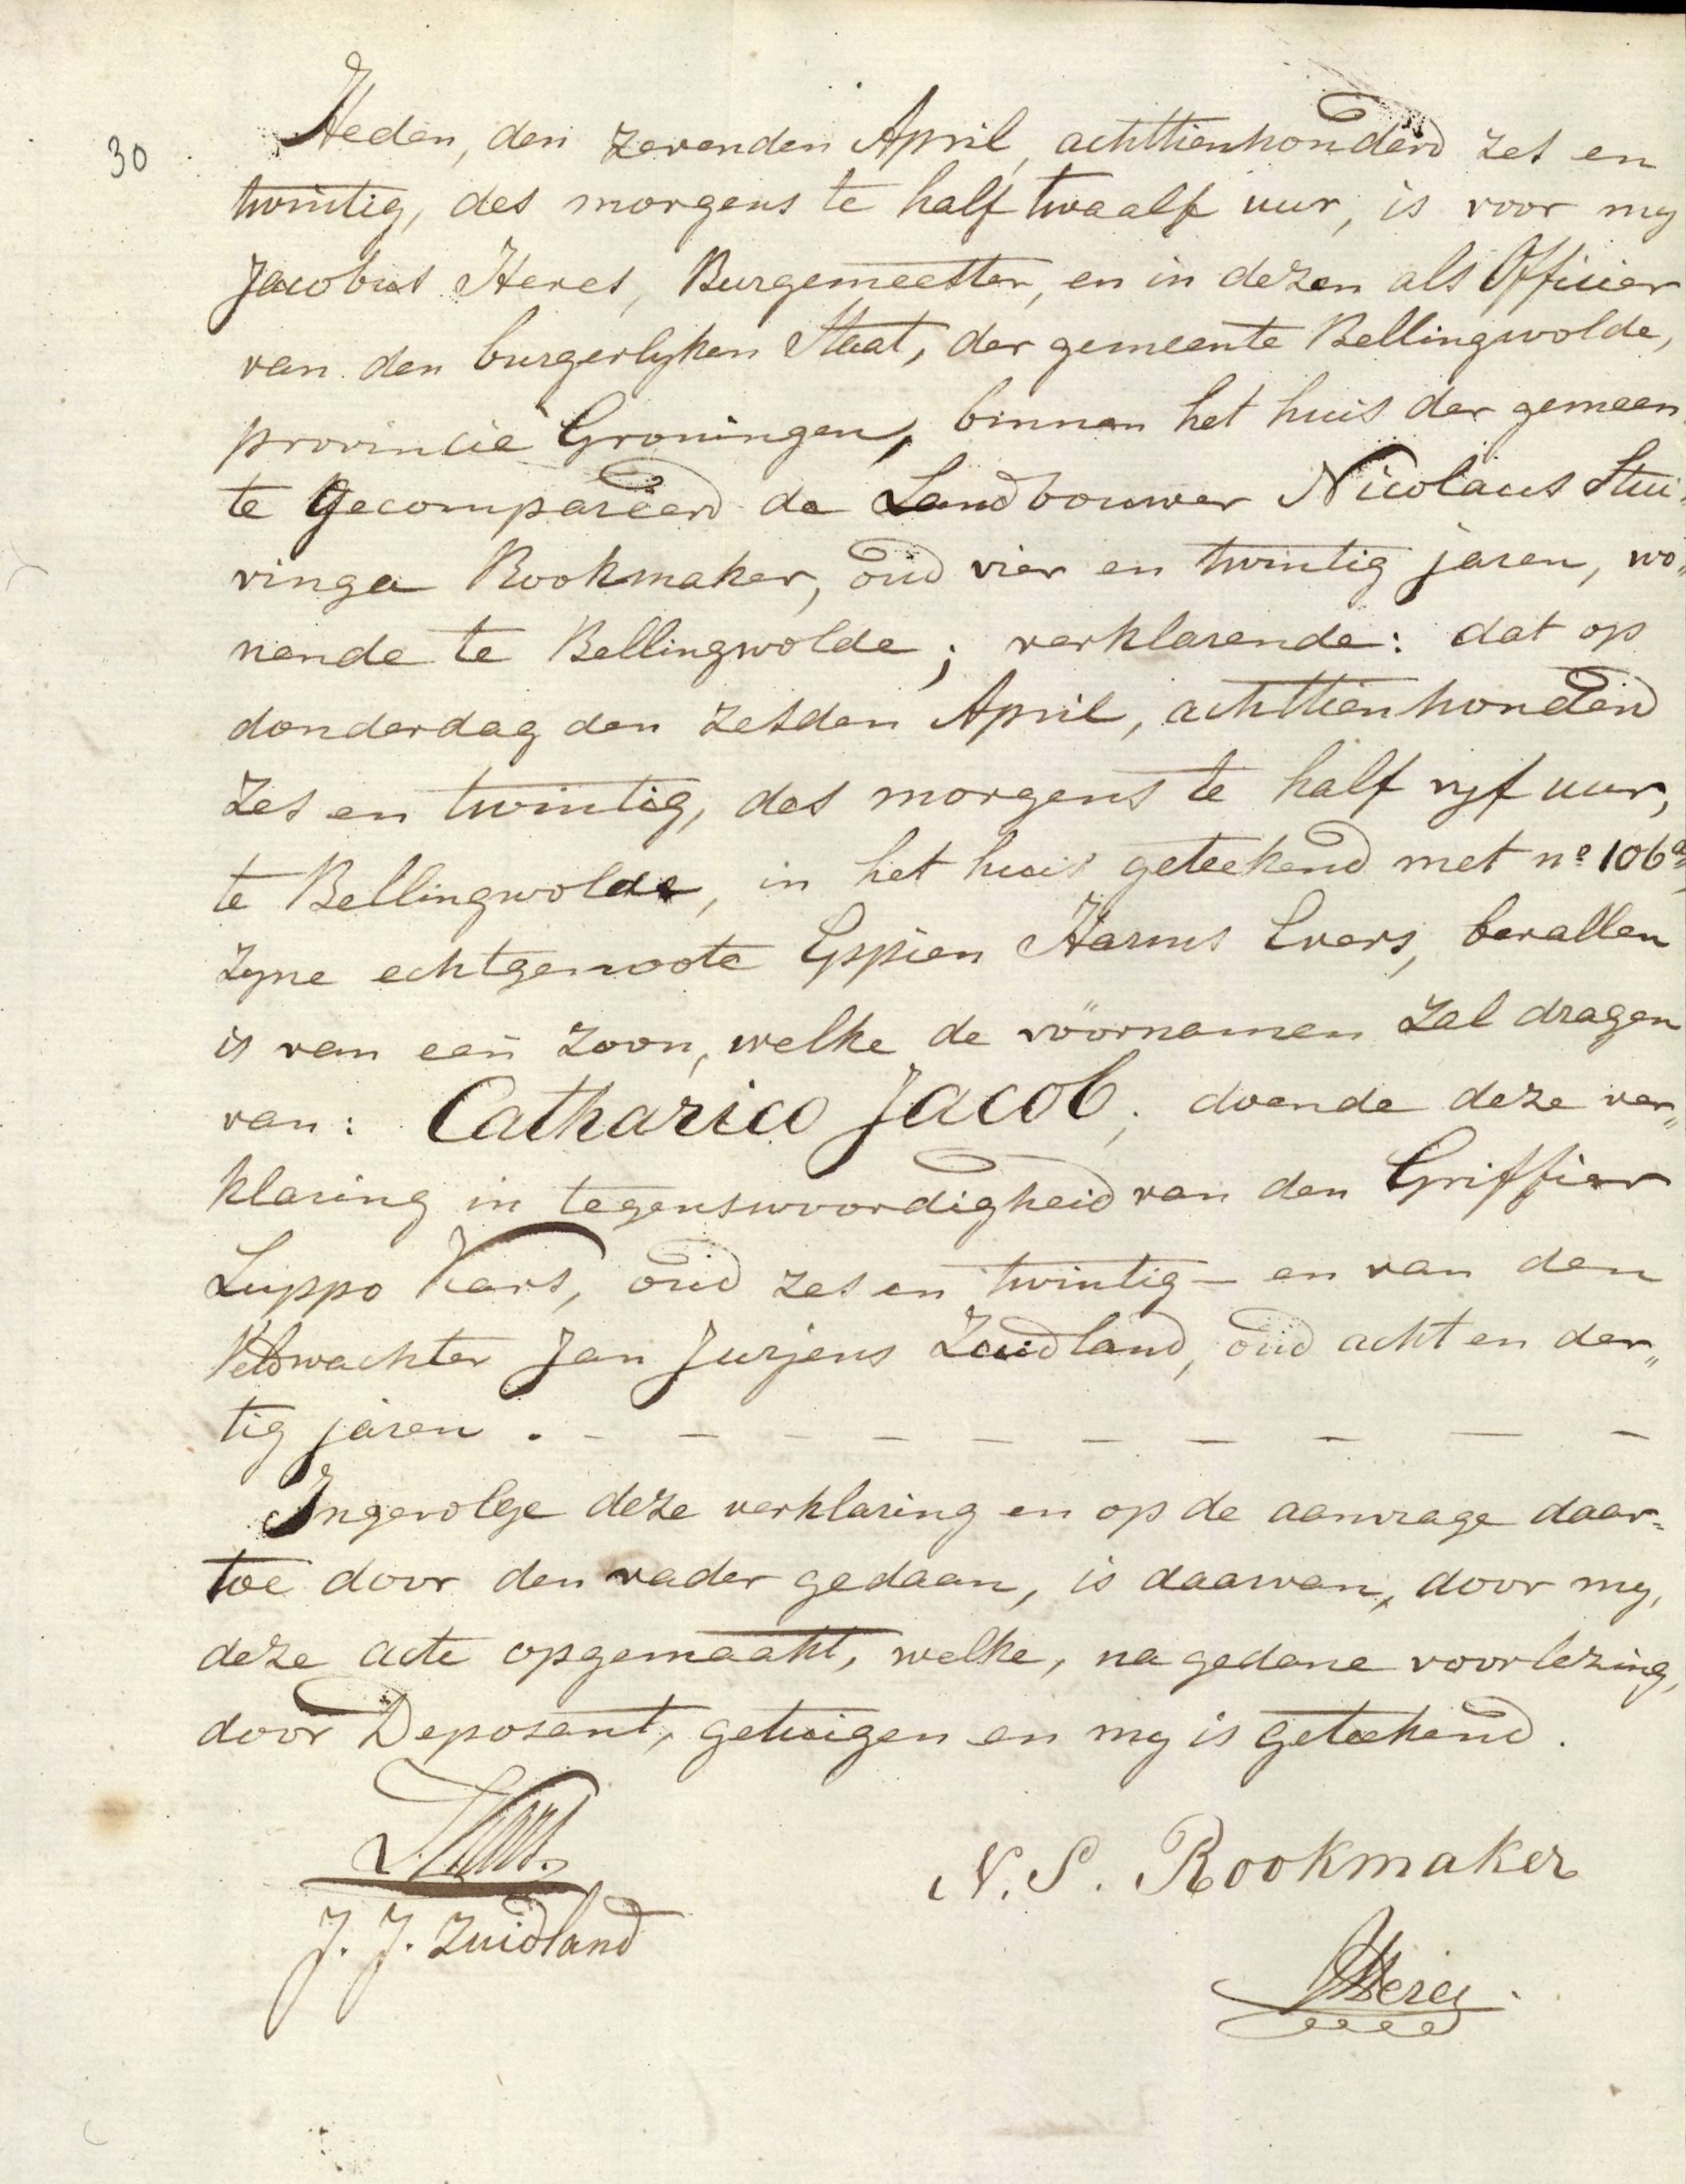 30
Heden, den zevenden April, achttienhonderd zes en
twintig, des morgens te half twaalf uur, is voor my
Jacobus Heres, Burgemeester, en in dezen als Officier
van den burgerlyken Staat, der gemeente Bellingwolde,
provincie Groningen, binnen het huis der gemeen
te gecompareerd de Landbouwer Nicolaus Stui„
vinga Rookmaker, oud vier en twintig jaren, wo„
nende te Bellingwolde; verklarende: dat op
donderdag den zesden April, achttienhonderd
zes en twintig, des morgens te half vyf uur,
te Bellingwolde, in het huis geteekend met no 106a,
zyne echtgenoote Eppien Harms Evers, bevallen
is van een zoon, welke de voornamen zal dragen
van: Catharico Jacob; doende deze ver„
klaring in tegenswoordigheid van den Griffier
Luppo Kars, oud zes en twintig - en van den
Veldwachter Jan Jurjens Zuidland, oud acht en der„
tig jaren. - - - - - - - - - -
Ingevolge deze verklaring en op de aanvrage daar=
toe door den vader gedaan, is daarvan, door my,
deze acte opgemaakt, welke, na gedane voorlezing,
door Deposant, getuigen en my is geteekend.
L. Kars.
N. S. Rookmaker
J. J. Zuidland
J Heres.